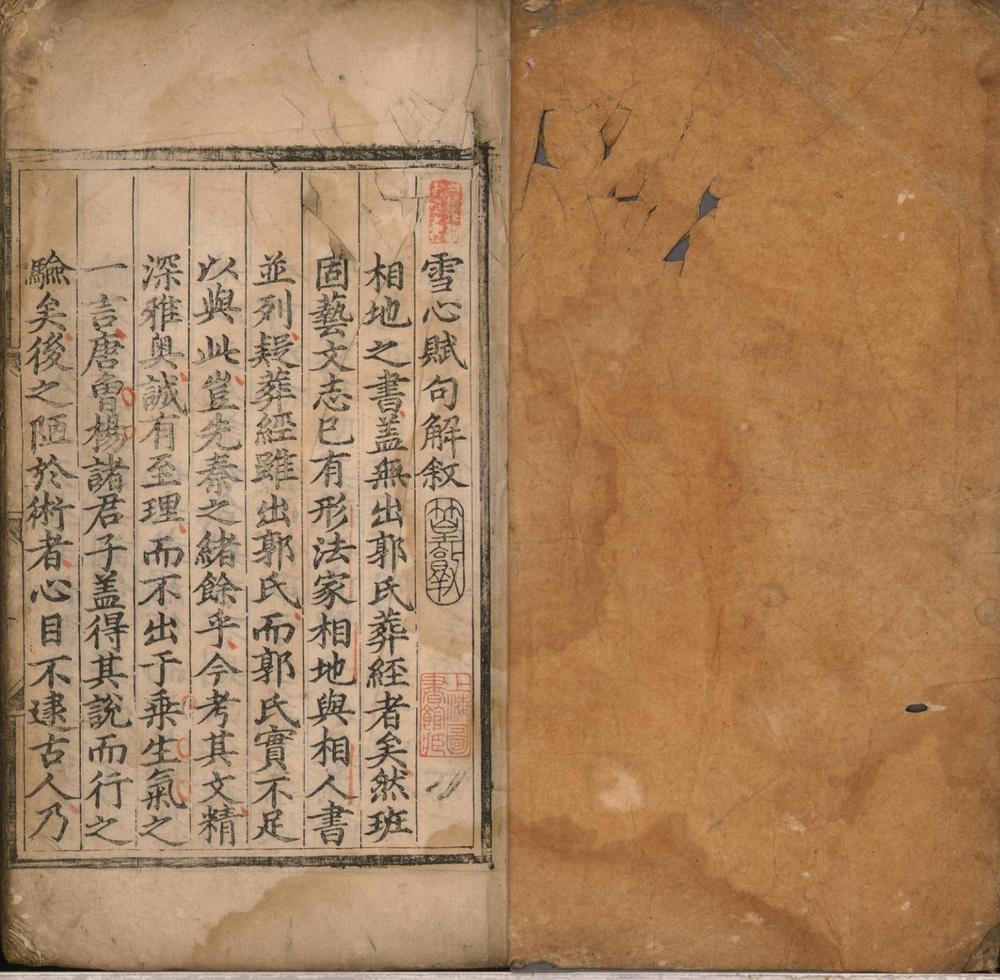 雪心賦句解敘
上海圖書館藏
相地之書蓋無出郭氏葬經者矣然班
固藝文志已有形法家相地與相人書
並列疑葬經雖出郭氏而郭氏實不足
以與此豈先秦之緒餘乎今考其文精
深雅奧誠有至理而不出于乗生氣之
一言唐曾楊諸君子蓋得其說而行之
驗矣後之陋於術者心目不逮古人乃